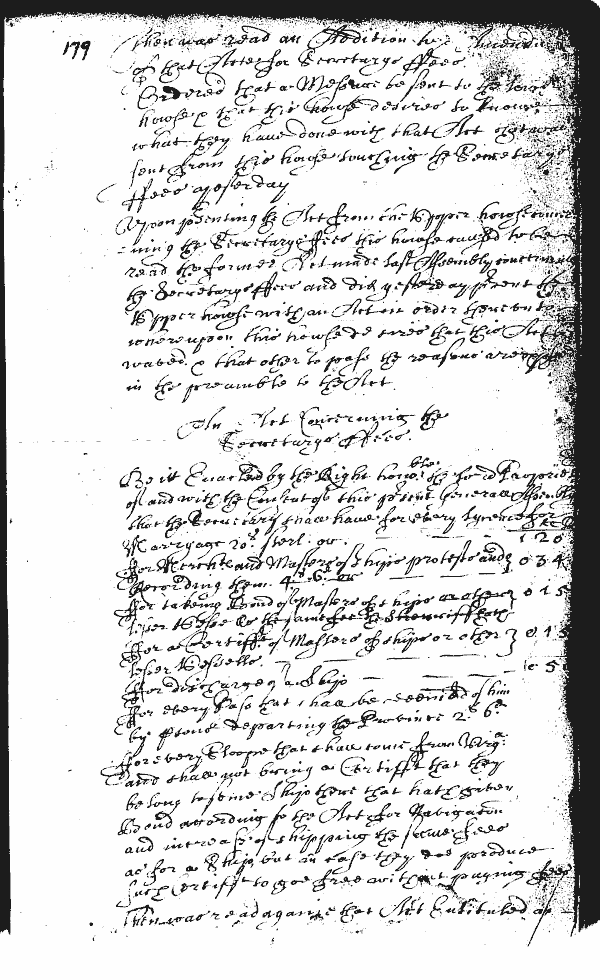 179
Then was read an Addition to
of that Acte for Secretarys ffees
Ordered that a Message be sent to the lower
howse & that this howse desires to knowe
what they have done with that Act that was
sent from this howse touching the Secretarys
ffees yesterday
Upon presenting the Act from the Upper howse concer
ning the Secretarys ffees this howse caused to be
read the former Act made last Assembly concerning
the Secretarys ffees and did yesterday present the
Upper howse with an Act in order thereunto
whereupon this howse desires that this Act be
waved & that other to passe the reasons are
in the preamble to the Act
An Act Concerning the
Secretarys ffees.
Be it Enacted by the Right honoble the Lord Proprie
of and with the Consent of this present Generall Assembly
that the Secretary shall have for every lycence for
Marryage 20s sterl. or 120
for Merchts and Masters of ships protests and } 034
Recording them 4s 6d or
For takeing Bond of Masters of ships or other } 015
lesser
For a Certifft of Masters of ships or other } 015
lesser Vessells.
For discharge of a Ship 50
For every Pass that shall be of him
by psons departing the Province 2s 6d
For every Sloope that shall come from Virga
and shall not bring a Certifft that they
belong to some Ship there that hath given
Bond according to the Act for Navigacon
and increase of shipping the same fees
as for a Ship but in case they doe produce
such Certifft to goe free without paying fees
Then was read againe that Act Entituled an